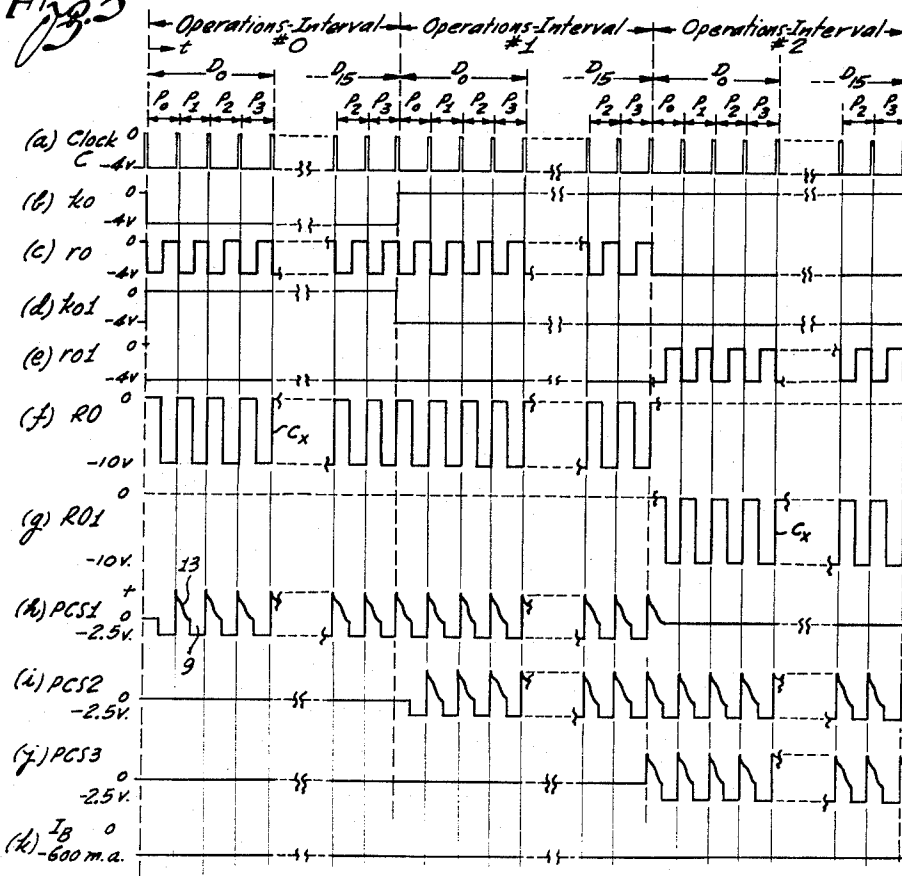 Fig. 3
Operations-Interval #0 Operations-Interval #1 Operations-Interval #2
t
D0 D15 D0 D15 D0 D15
P0 P1 P2 P3 P2 P3 P0 P1 P2 P3 P2 P3 P0 P1 P2 P3 P2 P3
(a) Clock C 0 -4v
(b) ko 0 -4v
(c) ro 0 -4v
(d) ko1 0 -4v
(e) ro1 0 -4v
(f) RO 0 -10v
Cx
(g) RO1 0 -10v.
Cx
13
(h) PCS1 + 0 -2.5v.
9
(i) PCS2 0 -2.5v.
(j) PCS3 0 -2.5v.
(k) IB 0 -600 m.a.